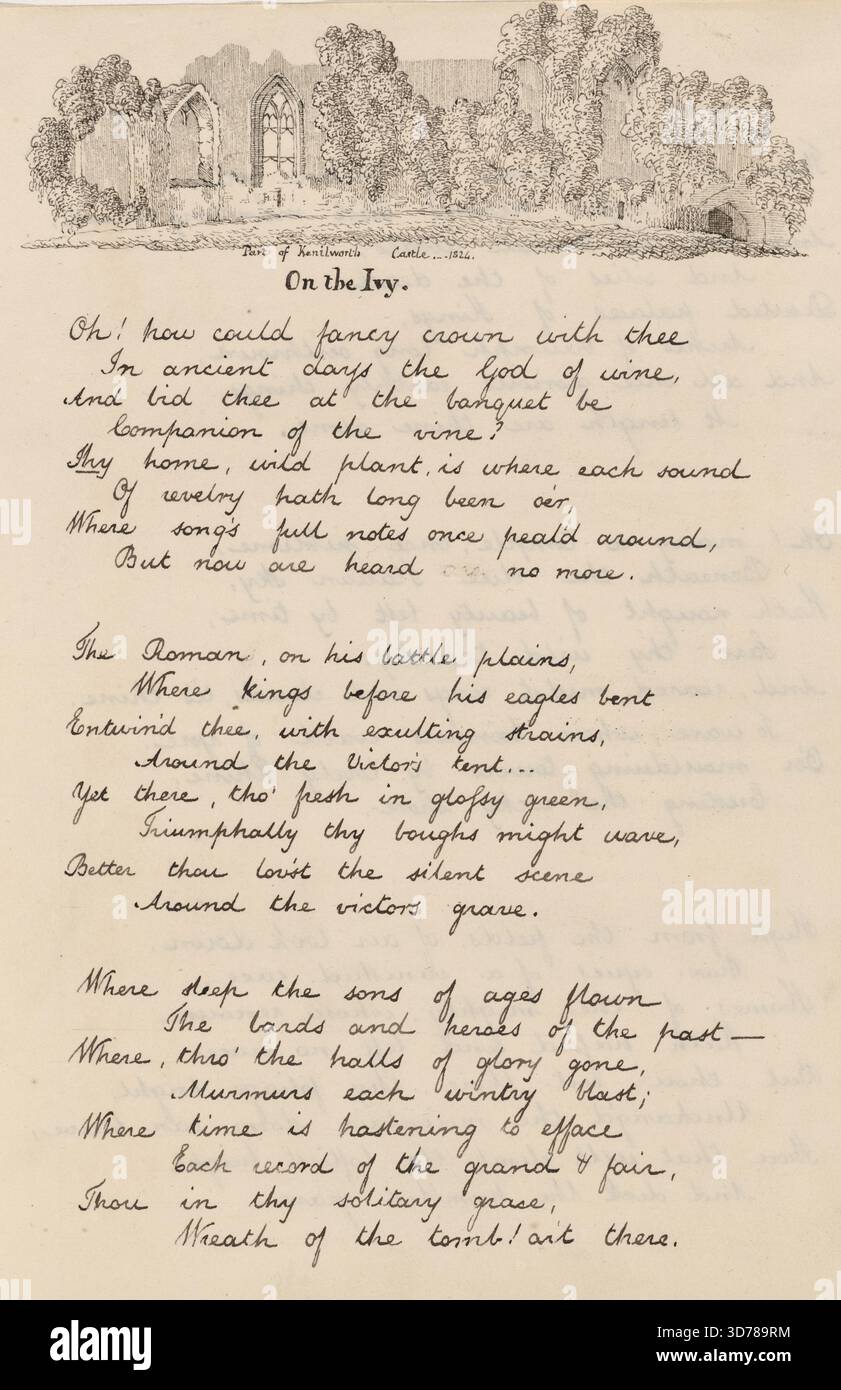 Part of Kenilworth Castle...1824.
On the Ivy.
Oh! how could fancy crown with thee
In ancient days the God of wine,
And bid thee at the banquet be
Companion of the vine?
Thy home, wild plant, is where each sound
Of revelry hath long been o'er,
Where song's full notes once peal'd around,
But now are heard no more.
The Roman, on his battle plains,
Where kings before his eagles bent
Entwin'd thee, with exulting strains,
Around the Victor's tent...
Yet there, tho' fresh in glossy green,
Triumphally thy boughs might wave,
Better thou lov'st the silent scene
Around the victors grave.
Where sleep the sons of ages flown
The bards and heroes of the past—
Where, thro' the halls of glory gone,
Murmurs each wintry blast;
Where time is hastening to efface
Each record of the grand & fair,
Thou in thy solitary grace,
Wreath of the tomb! art there.
alamy
Image ID: 3D789RM
www.alamy.com